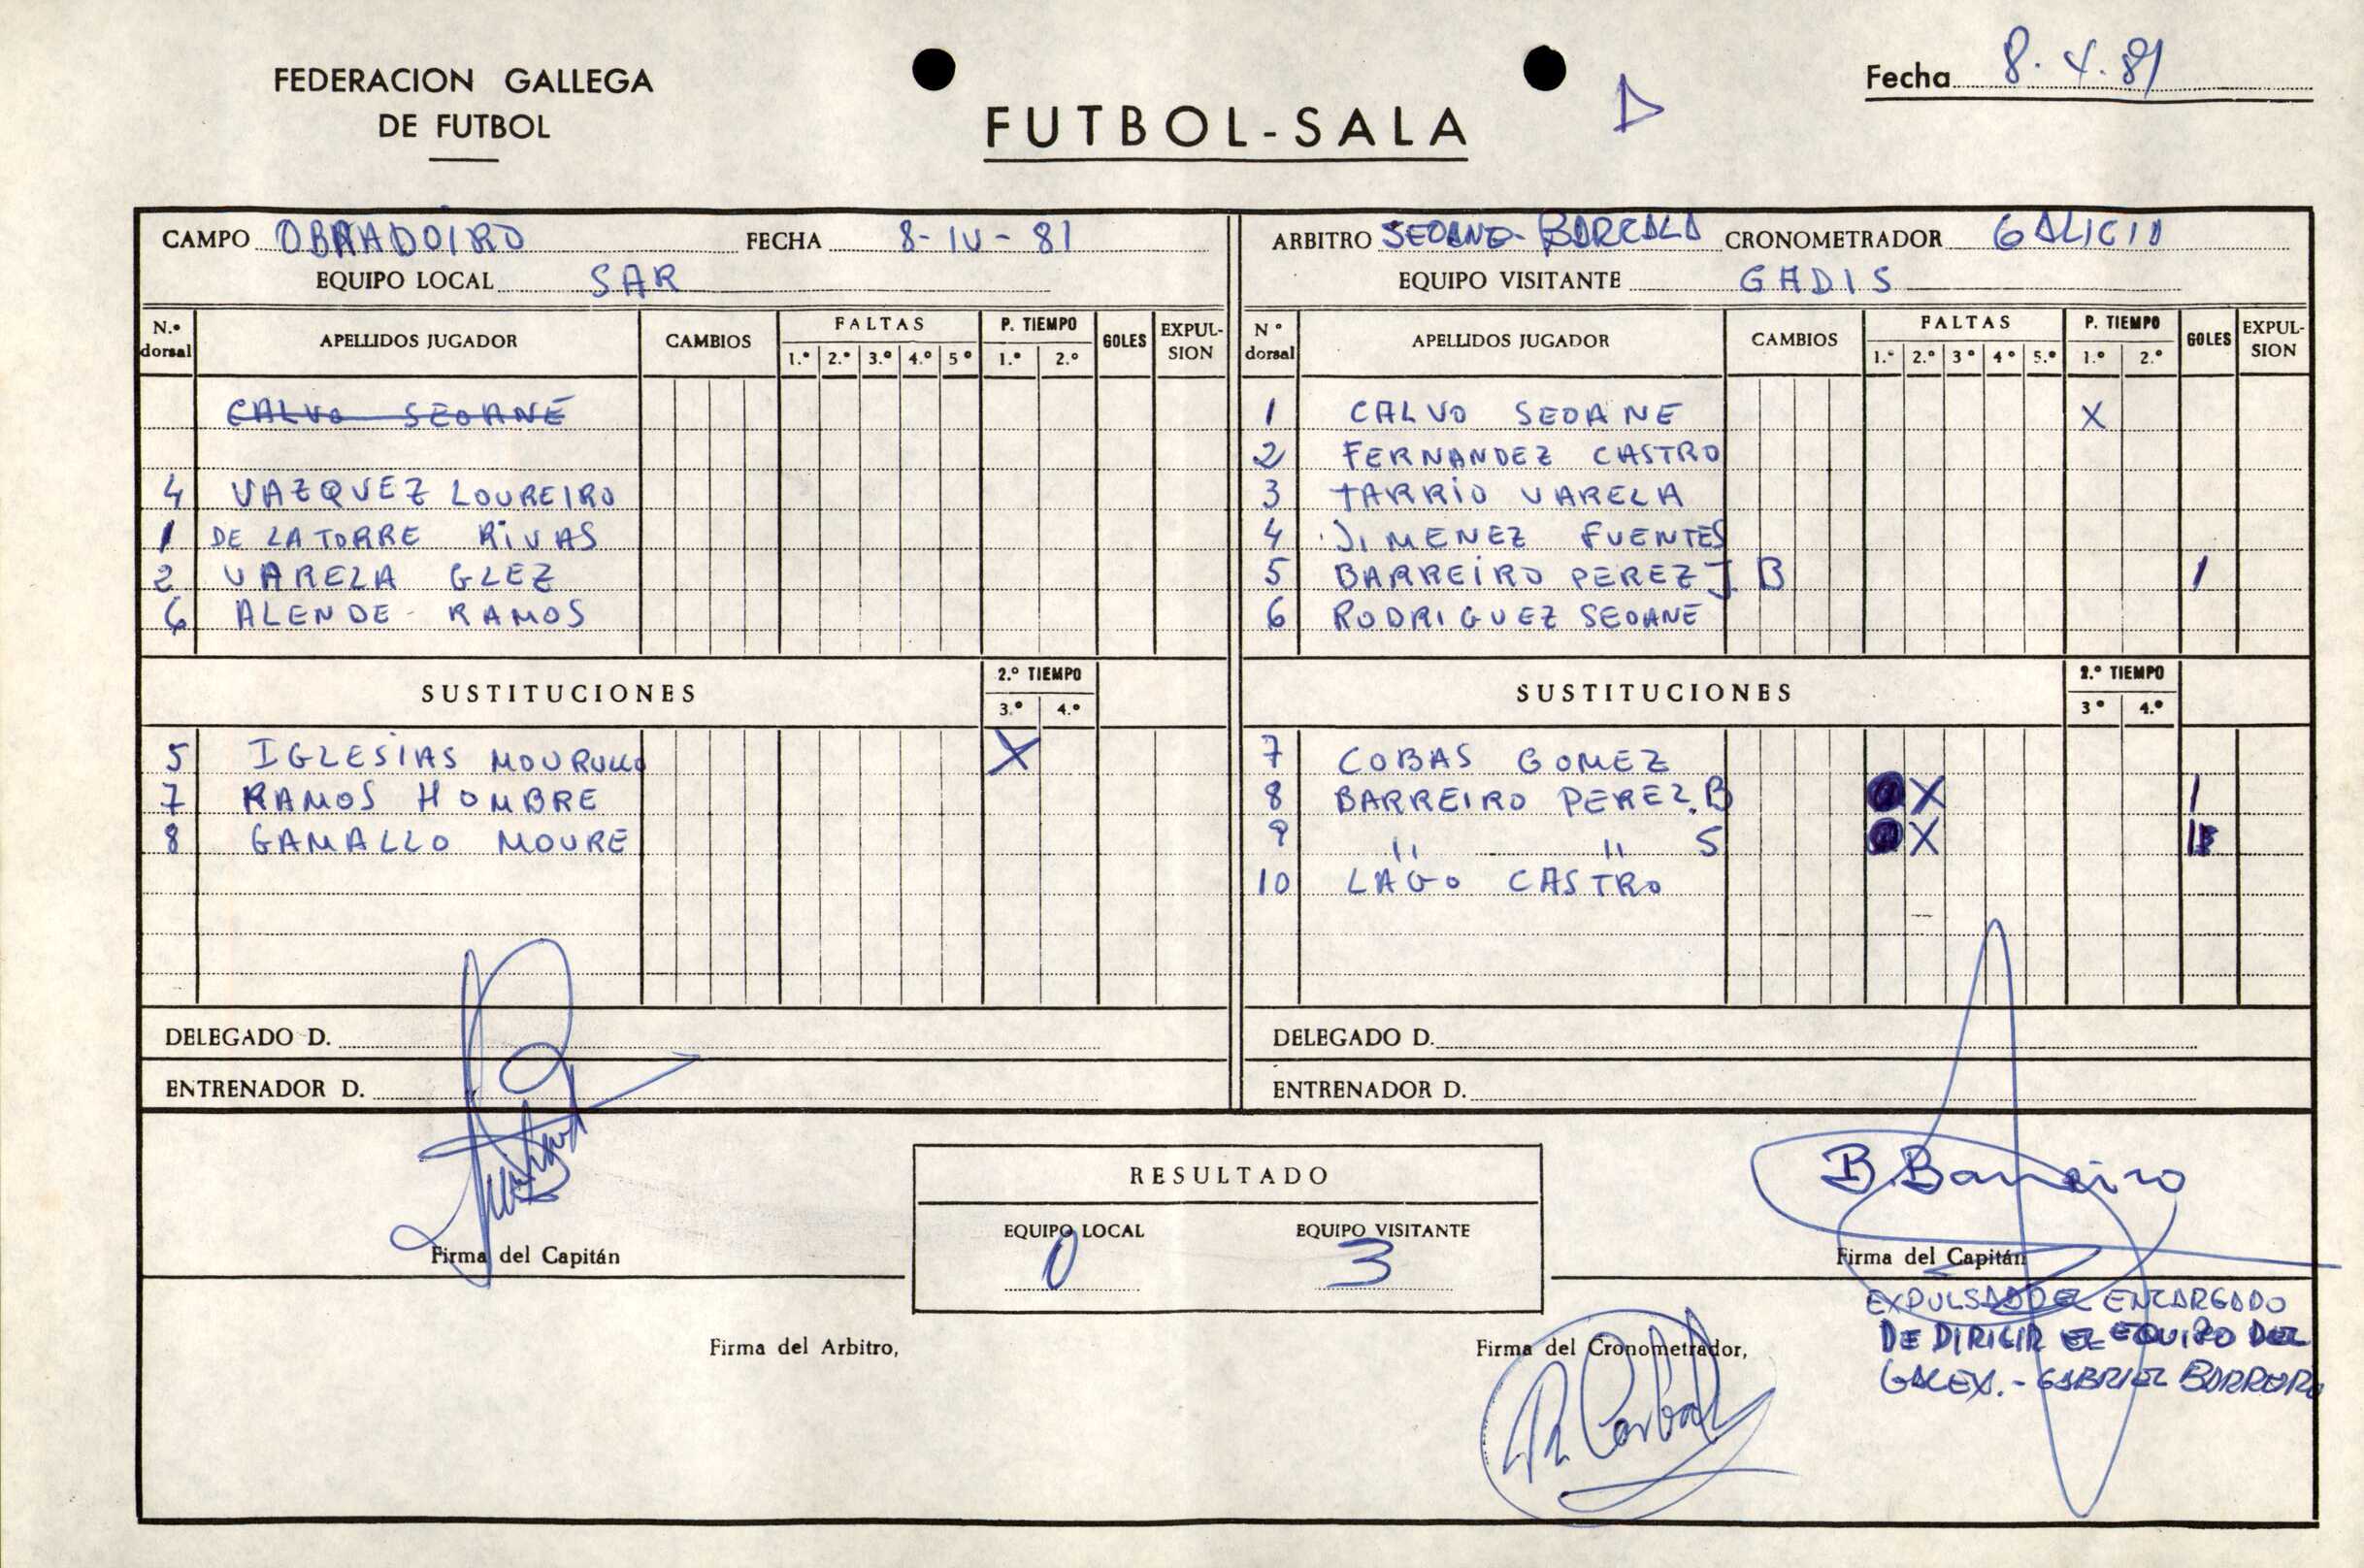 FEDERACION GALLEGA
DE FUTBOL
FUTBOL-SALA
Fecha 8.4.81
CAMPO OBRADOIRO FECHA 8-IV-81
EQUIPO LOCAL SAR
ARBITRO SEOANE-BARCALA CRONOMETRADOR GALICIA
EQUIPO VISITANTE GADIS
N.º dorsal APELLIDOS JUGADOR CAMBIOS FALTAS 1.º 2.º 3.º 4.º 5º P. TIEMPO 1.º 2.º GOLES EXPUL-SION
CALVO SEOANE
4 VAZQUEZ LOUREIRO
1 DE LA TORRE RIVAS
2 VARELA GLEZ
6 ALENDE RAMOS
SUSTITUCIONES 2.º TIEMPO 3.º 4.º
5 IGLESIAS MOURULLO X
7 RAMOS HOMBRE
8 GAMALLO MOURE
DELEGADO D.
ENTRENADOR D.
Nº dorsal APELLIDOS JUGADOR CAMBIOS FALTAS 1.º 2.º 3º 4º 5.º P. TIEMPO 1.º 2.º GOLES EXPUL-SION
1 CALVO SEOANE X
2 FERNANDEZ CASTRO
3 TARRIO VARELA
4 JIMENEZ FUENTES
5 BARREIRO PEREZ J. B 1
6 RODRIGUEZ SEOANE
SUSTITUCIONES 2.º TIEMPO 3º 4.º
7 COBAS GOMEZ
8 BARREIRO PEREZ. B X 1
9 " " S X 1
10 LAGO CASTRO
DELEGADO D.
ENTRENADOR D.
RESULTADO
EQUIPO LOCAL EQUIPO VISITANTE
0 3
B. Barreiro
Firma del Capitán
Firma del Capitán
Firma del Arbitro,
Firma del Cronometrador,
EXPULSADO EL ENCARGADO
DE DIRIGIR EL EQUIPO DEL
GABRIEL